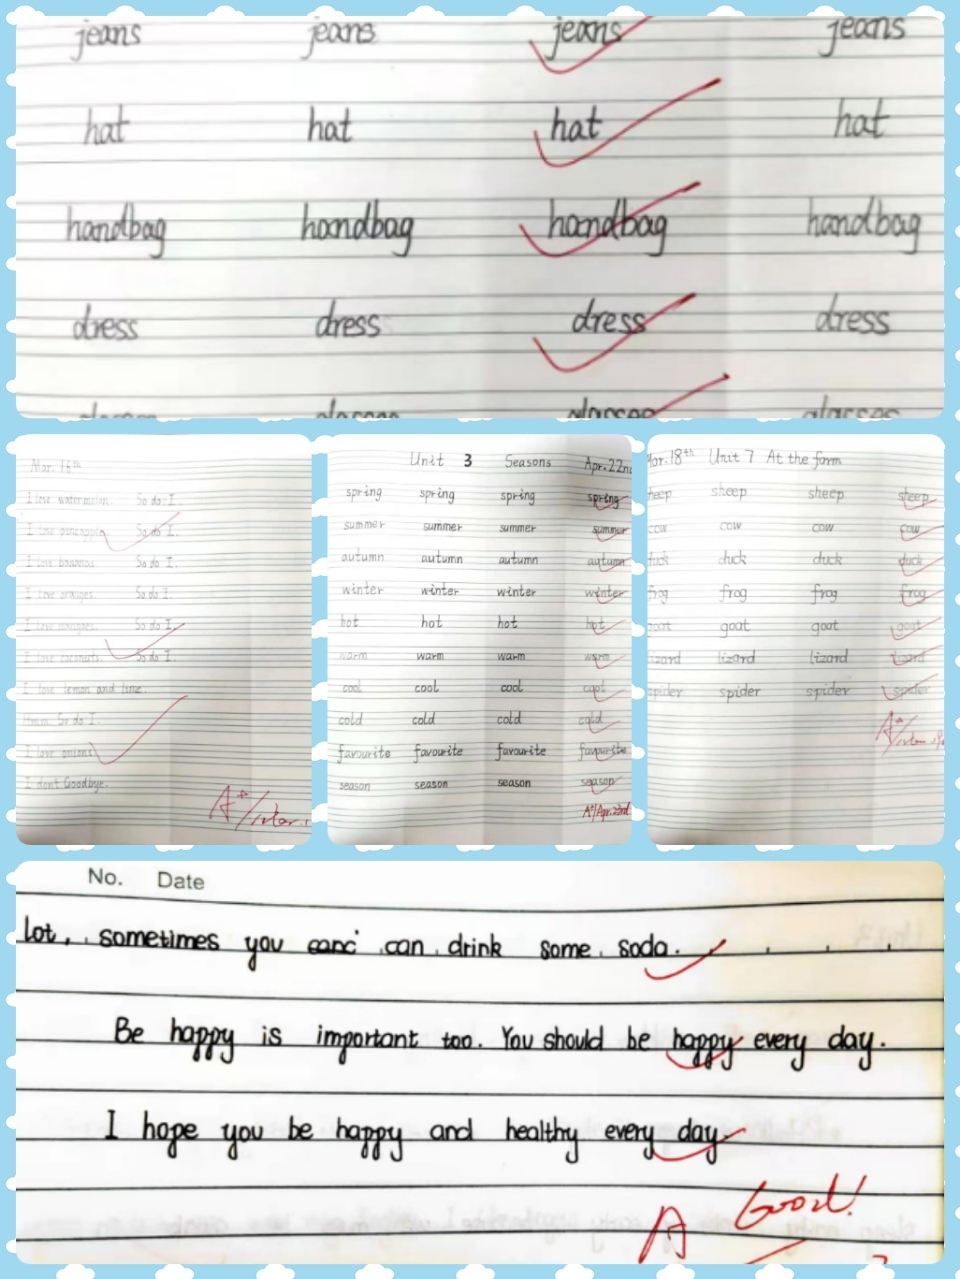 jeans jeans jeans jeans
hat hat hat hat
handbag handbag handbag handbag
dress dress dress dress
glasses glasses glasses glasses
Mar. 18th
I love watermelon. So do I.
I love pineapple. So do I.
I love bananas. So do I.
I love oranges. So do I.
I love mangoes. So do I.
I love coconuts. So do I.
I love lemon and lime.
Hmm. So do I.
I love onions.
I don't. Goodbye.
A+/Mar.
Unit 3 Seasons Apr. 22nd
spring spring spring spring
summer summer summer summer
autumn autumn autumn autumn
winter winter winter winter
hot hot hot hot
warm warm warm warm
cool cool cool cool
cold cold cold cold
favourite favourite favourite favourite
season season season season
A+/Apr. 22nd
Mar. 18th Unit 7 At the farm
sheep sheep sheep sheep
cow cow cow cow
duck duck duck duck
frog frog frog frog
goat goat goat goat
lizard lizard lizard lizard
spider spider spider spider
A+
No. Date
lot, sometimes you can drink some soda.
Be happy is important too. You should be happy every day.
I hope you be happy and healthy every day.
A Good!